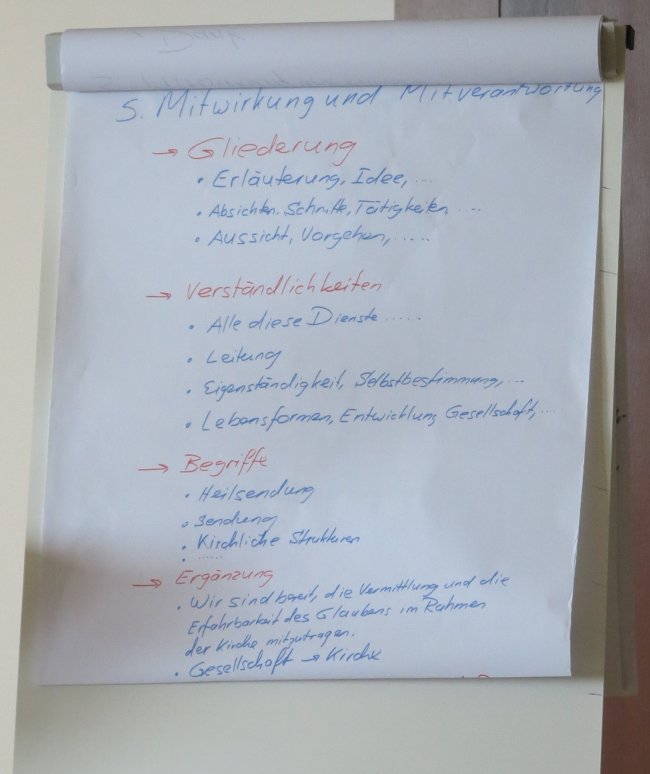 5. Mitwirkung und Mitverantwortung
→ Gliederung
• Erläuterung, Idee, ...
• Absichten, Schritte, Tätigkeiten, ....
• Aussicht, Vorgehen, .....
→ Verständlichkeiten
• Alle diese Dienste .....
• Leitung
• Eigenständigkeit, Selbstbestimmung, ...
• Lebensformen, Entwicklung Gesellschaft, ...
→ Begriffe
• Heilsendung
• Sendung
• Kirchliche Strukturen
• .....
→ Ergänzung
• Wir sind bereit, die Vermittlung und die
Erfahrbarkeit des Glaubens im Rahmen
der Kirche mitzutragen.
• Gesellschaft → Kirche